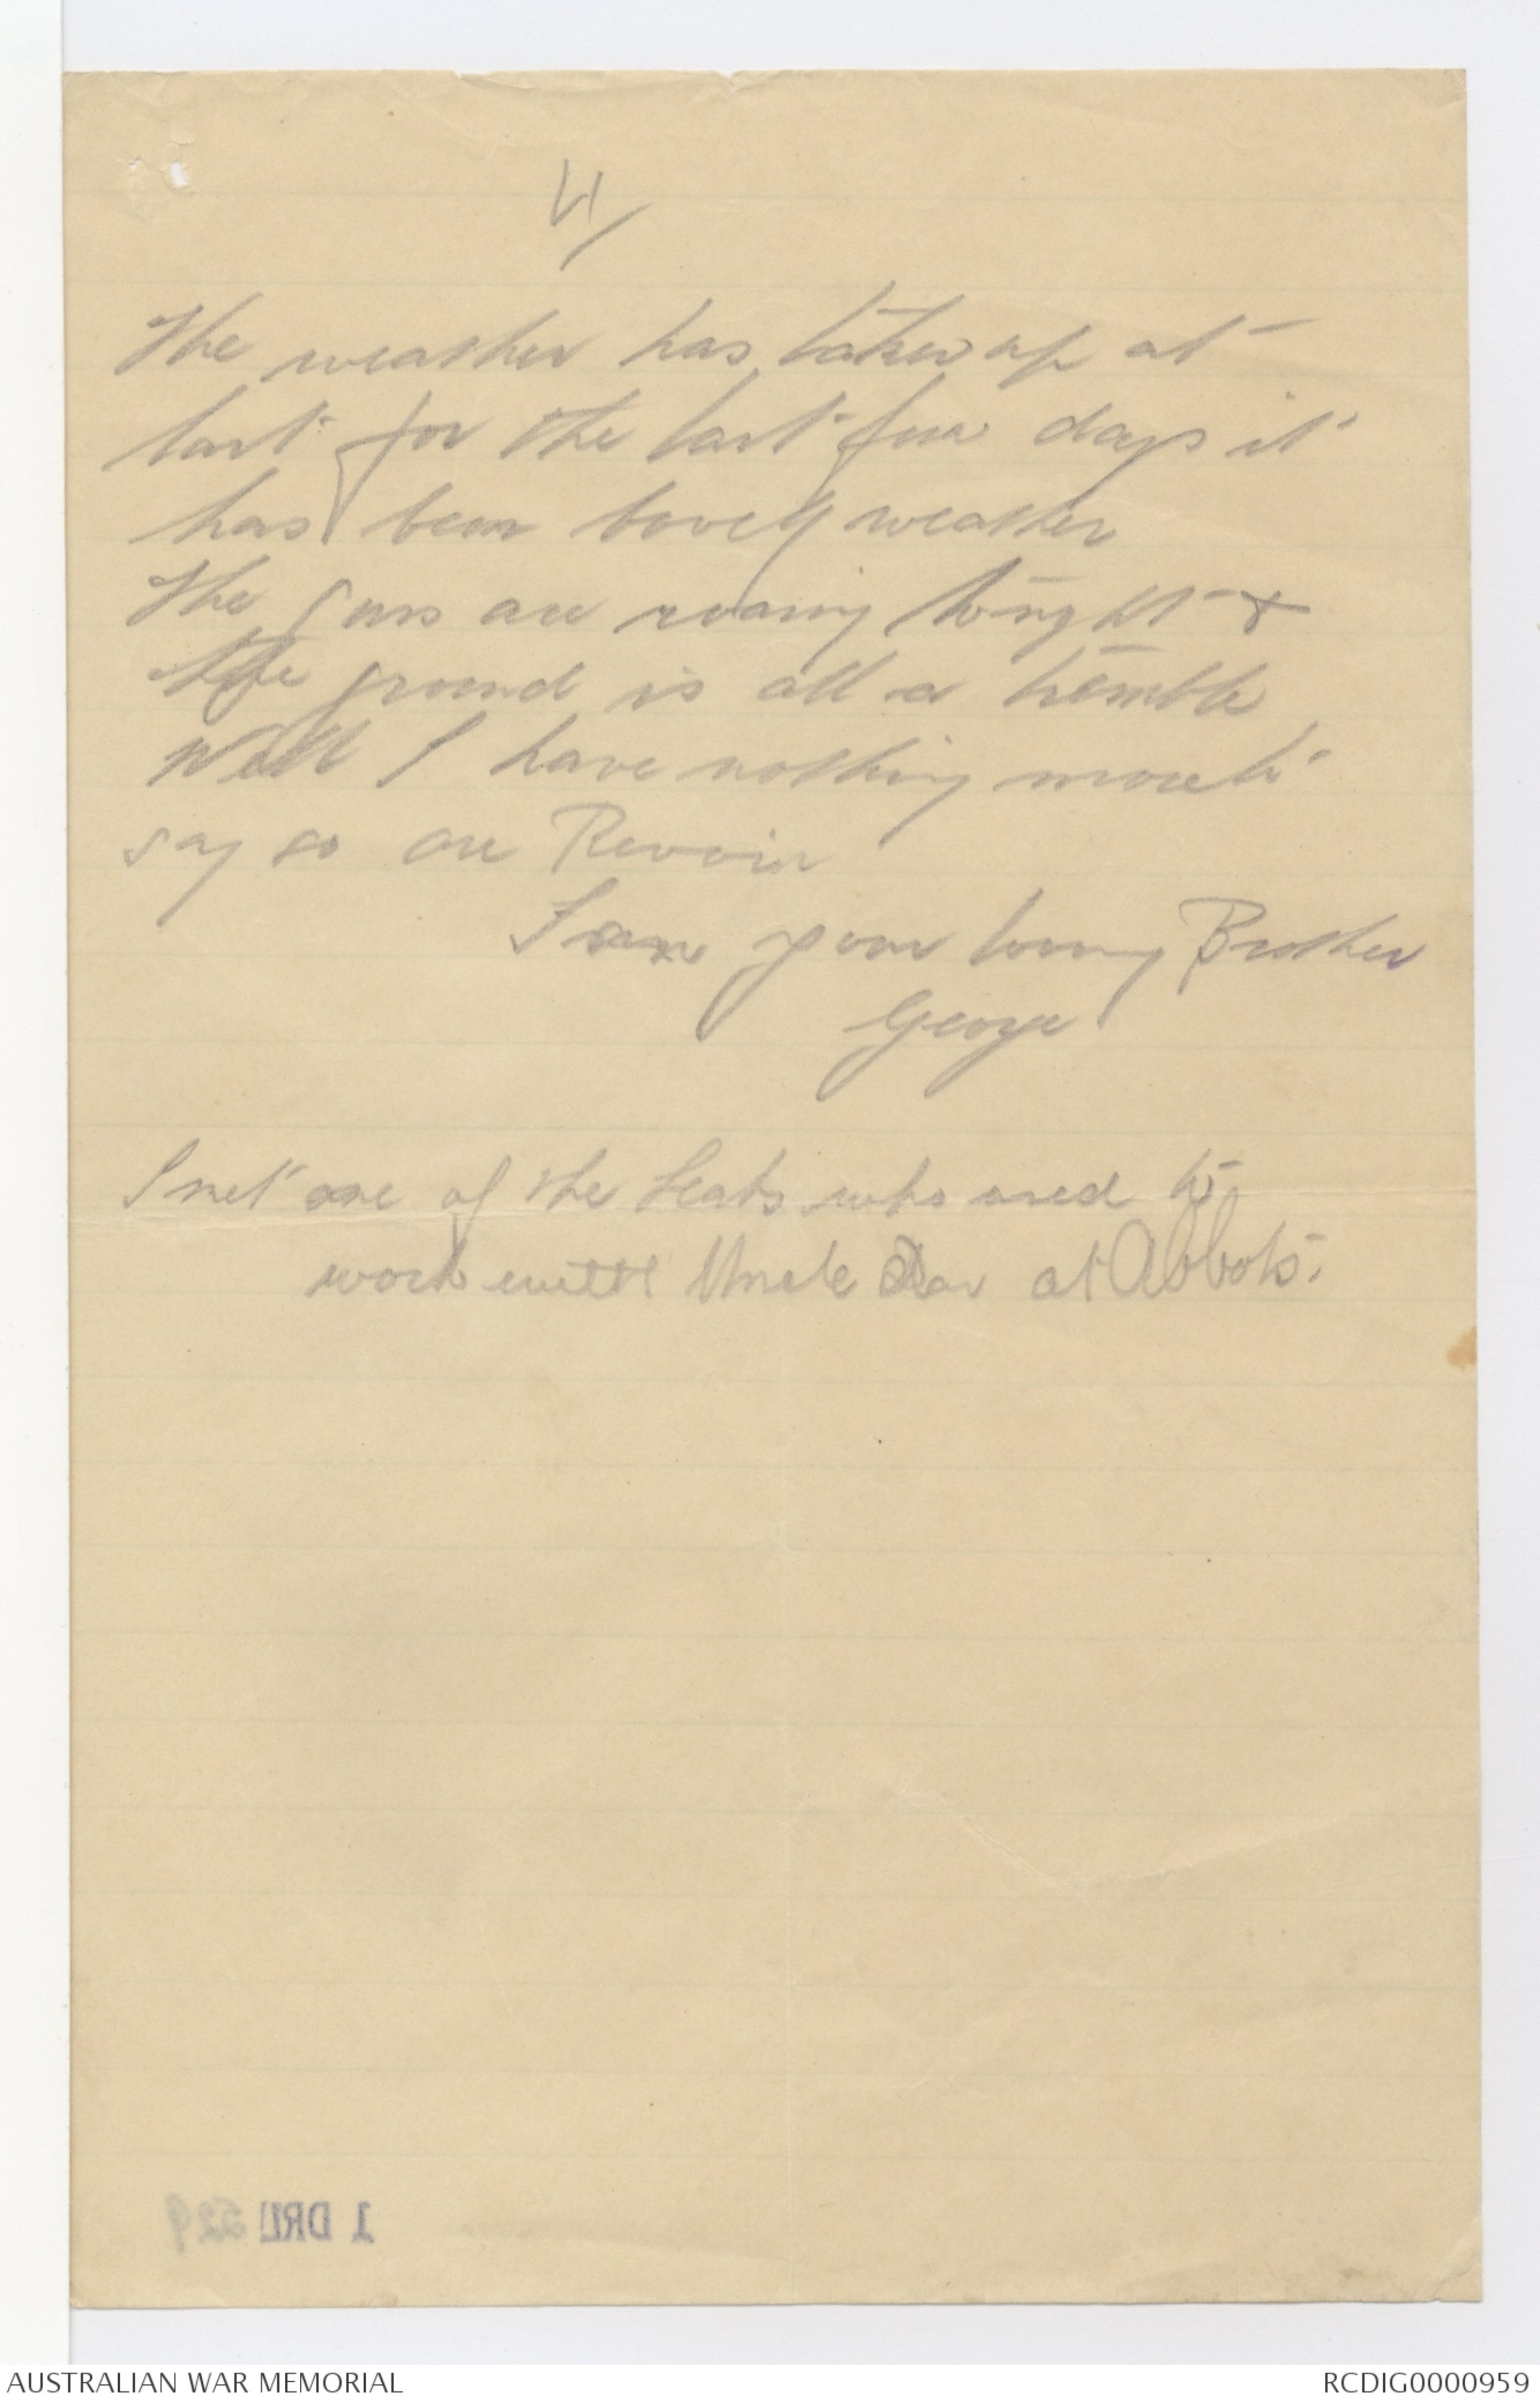 4/
The weather has taken up at
last for the last few days it
has been lovely weather
The guns are roaring tonight &
the ground is all a tremble
Well I have nothing more to
say so Au Revoir
I am your loving Brother
George
I met one of the who used to
work with Uncle at Abbots.
1 DRL 529
AUSTRALIAN WAR MEMORIAL
RCDIG0000959